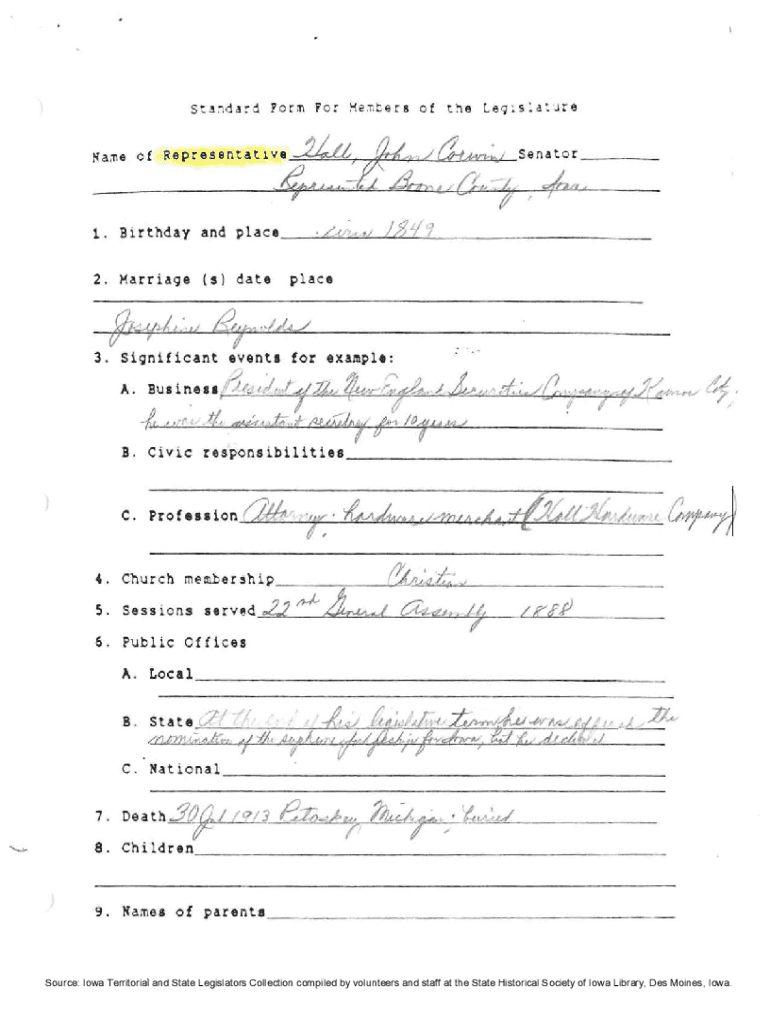 Standard Form For Members of the Legislature
Name of Representative Hall, John Corwin Senator
Represented Boone County, Iowa
1. Birthday and place circa 1849
2. Marriage (s) date place
Josephine Reynolds
3. Significant events for example:
A. Business President of the New England Securities Company of Kansas City;
he was the assistant secretary for 10 years
B. Civic responsibilities
C. Profession Attorney; hardware merchant (Hall Hardware Company)
4. Church membership Christian
5. Sessions served 22nd General Assembly 1888
6. Public Offices
A. Local
B. State At the end of his legislative term he was offered the
nomination of the supreme judgeship for Iowa, but he declined
C. National
7. Death 30 Jul 1913 Petoskey, Michigan; buried
8. Children
9. Names of parents
Source: Iowa Territorial and State Legislators Collection compiled by volunteers and staff at the State Historical Society of Iowa Library, Des Moines, Iowa.